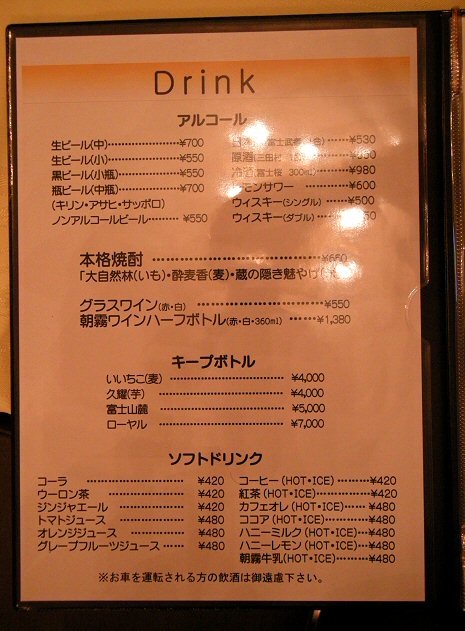 Drink
アルコール
生ビール(中)……………¥700
生ビール(小)……………¥550
黒ビール(小瓶)…………¥550
瓶ビール(中瓶)…………¥700
(キリン・アサヒ・サッポロ)
ノンアルコールビール……… ¥550
……¥530
原酒
冷酒(富士桜 300ml)……¥980
モンサワー ………¥600
ウィスキー(シングル) ……¥500
ウィスキー(ダブル)
本格焼酎 ………………………………¥660
「大自然林(いも)・酔麦香(麦)・蔵の隠き魅やげ
グラスワイン(赤・白) ………………………¥550
朝霧ワインハーフボトル(赤・白・360ml) ……¥1,380
キープボトル
いいちこ(麦) ………………………… ¥4,000
久耀(芋) ………………………… ¥4,000
富士山麓 ………………………… ¥5,000
ローヤル ………………………… ¥7,000
ソフトドリンク
コーラ ……………… ¥420
ウーロン茶 ……………… ¥420
ジンジャエール ……………… ¥420
トマトジュース ……………… ¥480
オレンジジュース ……………… ¥480
グレープフルーツジュース …… ¥480
コーヒー(HOT・ICE) ………¥420
紅茶(HOT・ICE) …………¥420
カフェオレ(HOT・ICE) ……¥480
ココア(HOT・ICE) …………¥480
ハニーミルク(HOT・ICE) ……¥480
ハニーレモン(HOT・ICE) ……¥480
朝霧牛乳(HOT・ICE) ………¥480
※お車を運転される方の飲酒は御遠慮下さい。